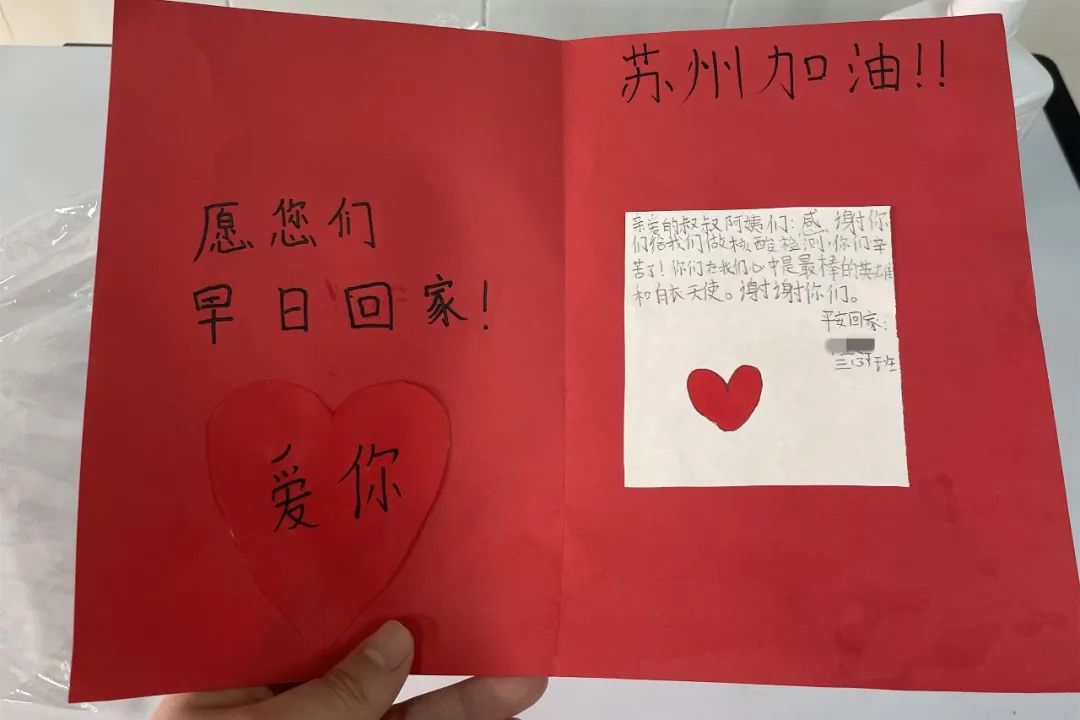 愿您们
早日回家!
爱你
苏州加油!!
亲爱的叔叔阿姨们:感谢你
们给我们做核酸检测,你们辛
苦了!你们在我们心中是最棒的英雄
和白衣天使。谢谢你们。
平安回家: